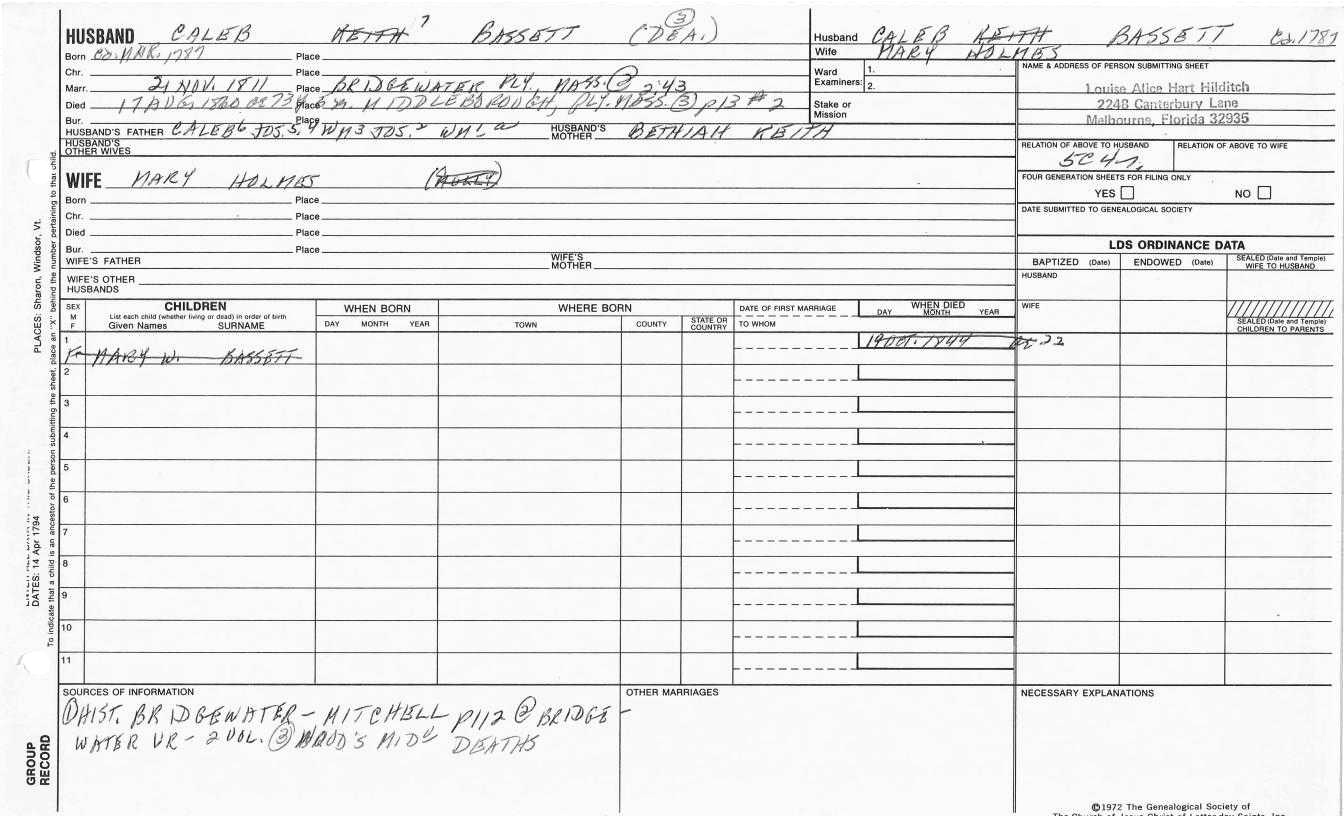 HUSBAND CALEB KEITH 7 BASSETT (DEA.) ③
Husband CALEB KEITH BASSETT Ca.1787
Wife MARY HOLMES
Born Ca. MAR. 1787 Place
Chr. Place
Marr. 21 NOV. 1811 Place BRIDGEWATER PLY, MASS. ② 2:43
Died 17 AUG. 1860 ae 73 Place MIDDLEBOROUGH, PLY. MASS. ③ p13 #2
Bur. Place
HUSBAND'S FATHER CALEB6 JOS.5,4 WM3 JOS.2 WM1
HUSBAND'S MOTHER BETHIAH KEITH
HUSBAND'S OTHER WIVES
Ward Examiners: 1.
2.
Stake or Mission
NAME & ADDRESS OF PERSON SUBMITTING SHEET
Louise Alice Hart Hilditch
2248 Canterbury Lane
Melbourne, Florida 32935
RELATION OF ABOVE TO HUSBAND RELATION OF ABOVE TO WIFE
5C 4r
FOUR GENERATION SHEETS FOR FILING ONLY
YES NO
DATE SUBMITTED TO GENEALOGICAL SOCIETY
WIFE MARY HOLMES
Born Place
Chr. Place
Died Place
Bur. Place
WIFE'S FATHER WIFE'S MOTHER
WIFE'S OTHER HUSBANDS
LDS ORDINANCE DATA
BAPTIZED (Date) ENDOWED (Date) SEALED (Date and Temple) WIFE TO HUSBAND
HUSBAND
WIFE
SEALED (Date and Temple) CHILDREN TO PARENTS
SEX M F
CHILDREN
List each child (whether living or dead) in order of birth
Given Names SURNAME
WHEN BORN
DAY MONTH YEAR
WHERE BORN
TOWN COUNTY STATE OR COUNTRY
DATE OF FIRST MARRIAGE
TO WHOM
WHEN DIED
DAY MONTH YEAR
1
F MARY W. BASSETT 19 OCT. 1844 ae. 22
2
3
4
5
6
7
8
9
10
11
SOURCES OF INFORMATION
① HIST. BRIDGEWATER - MITCHELL p112 ② BRIDGE-
WATER VR - 2 VOL. ③ WOOD'S MIDD DEATHS
OTHER MARRIAGES
NECESSARY EXPLANATIONS
PLACES: Sharon, Windsor, Vt.
DATES: 14 Apr 1794
To indicate that a child is an ancestor of the person submitting the sheet, place an "X" behind the number pertaining to that child.
GROUP RECORD
©1972 The Genealogical Society of
The Church of Jesus Christ of Latter-day Saints, Inc.